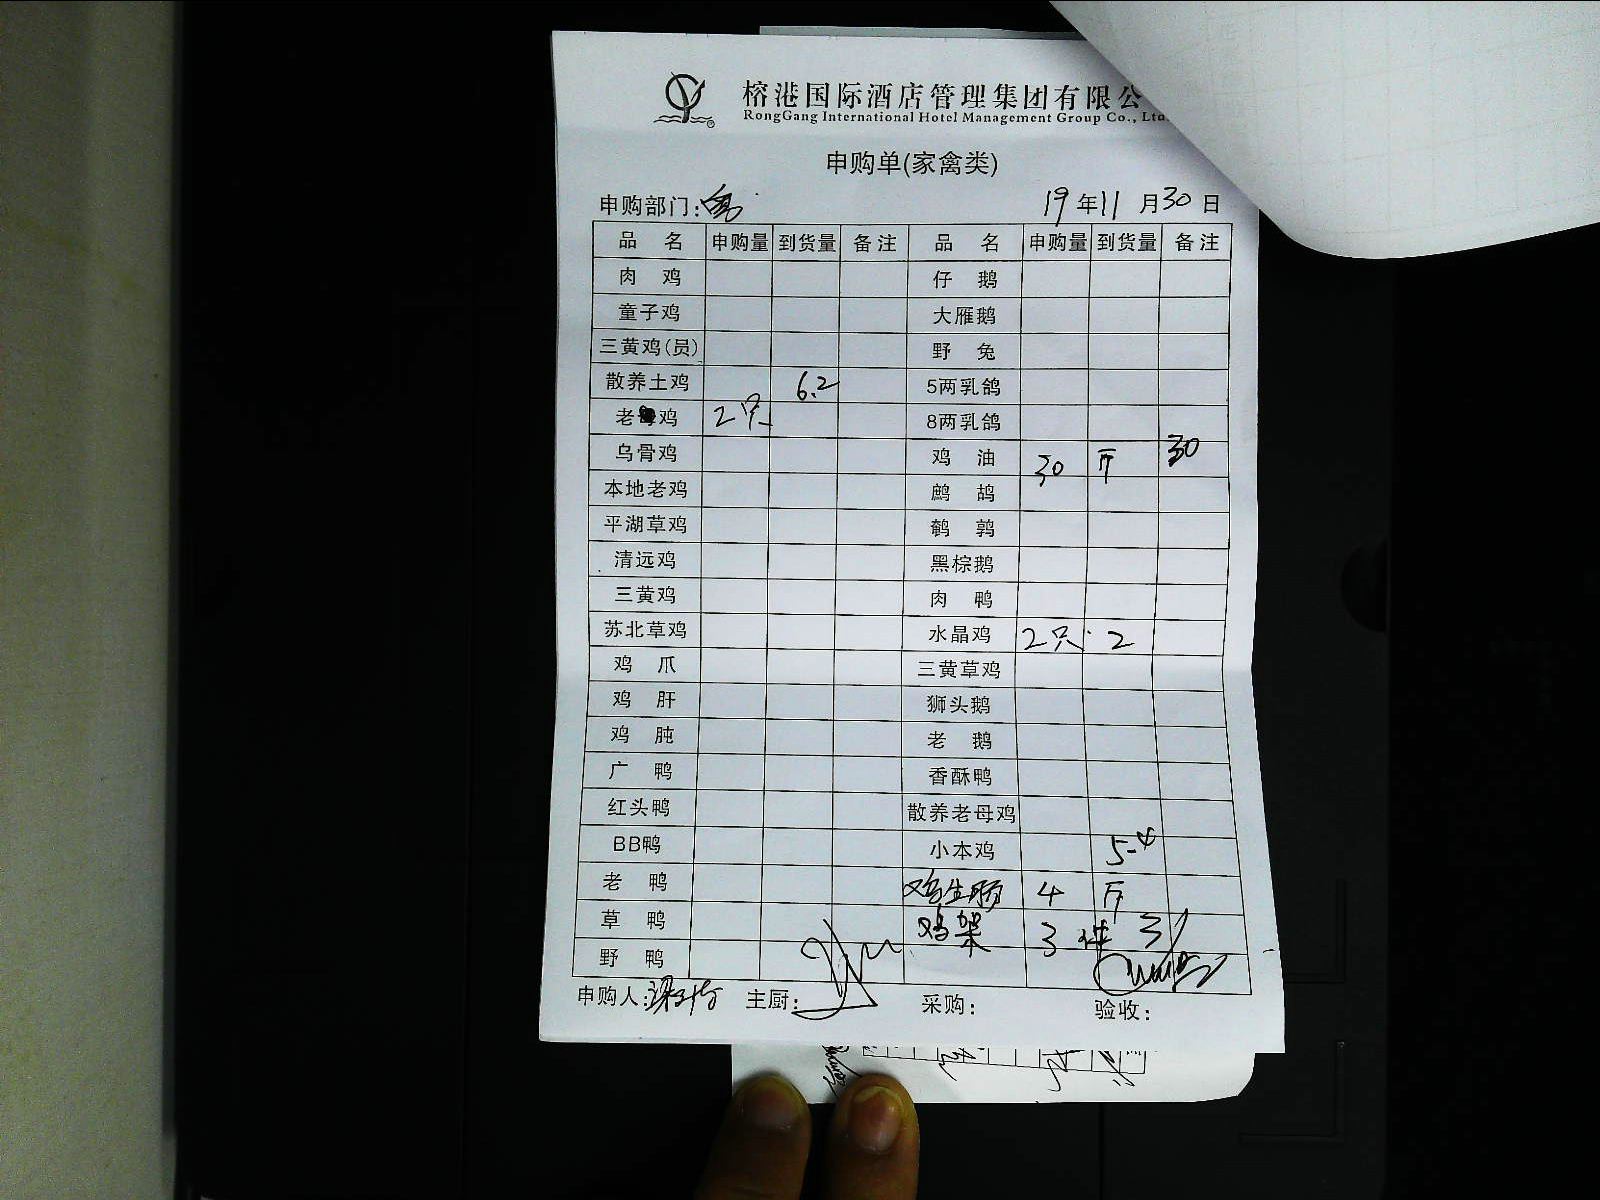 榕港国际酒店管理集团有限公
RongGang International Hotel Management Group Co., Ltd.
申购单(家禽类)
申购部门: 19年11月30日
品 名 申购量 到货量 备注 品 名 申购量 到货量 备注
肉 鸡 仔 鹅
童子鸡 大雁鹅
三黄鸡(员) 野 兔
散养土鸡 6.2 5两乳鸽
老鸡 2只 8两乳鸽
乌骨鸡 鸡 油 30 斤 30
本地老鸡 鹧 鸪
平湖草鸡 鹌 鹑
清远鸡 黑棕鹅
三黄鸡 肉 鸭
苏北草鸡 水晶鸡 2只 2
鸡 爪 三黄草鸡
鸡 肝 狮头鹅
鸡 肫 老 鹅
广 鸭 香酥鸭
红头鸭 散养老母鸡
BB鸭 小本鸡 5-4
老 鸭 鸡生肠 4 斤
草 鸭 鸡架 3 件 3
野 鸭
申购人: 主厨: 采购: 验收: